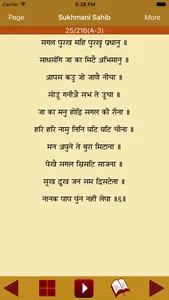 5:28 PM
Page Sukhmani Sahib More
25/216(A-3)
सगल पुरख महि पुरखु प्रधानु ॥
साधसंगि जा का मिटै अभिमानु ॥
आपस कउ जो जाणै नीचा ॥
सोऊ गनीऐ सभ ते ऊचा ॥
जा का मनु होइ सगल की रीना ॥
हरि हरि नामु तिनि घटि घटि चीना ॥
मन अपुने ते बुरा मिटाना ॥
पेखै सगल स्रिसटि साजना ॥
सूख दूख जन सम द्रिसटेता ॥
नानक पाप पुंन नही लेपा ॥६॥